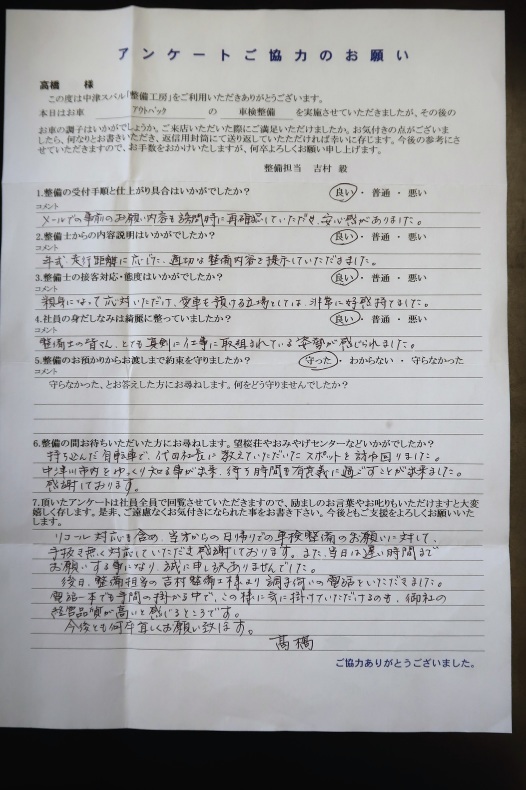 アンケートご協力のお願い
高橋　様
この度は中津スバル「整備工房」をご利用いただきありがとうございます。
本日はお車　アウトバック　の　車検整備　を実施させていただきましたが、その後の
お車の調子はいかがでしょうか。ご来店いただいた際にご満足いただけましたか。お気付きの点がございま
したら、何なりとお書きいただき、返信用封筒にて送り返していただければ幸いに存じます。今後の参考にさ
せていただきますので、お手数をおかけいたしますが、何卒よろしくお願い申し上げます。
整備担当　吉村　毅
1.整備の受付手順と仕上がり具合はいかがでしたか?　良い・普通・悪い
コメント
メールでの事前のお願い内容も訪問時に再確認していただき、安心感がありました。
2.整備士からの内容説明はいかがでしたか?　良い・普通・悪い
コメント
年式、走行距離に応じた、適切な整備内容を提示していただきました。
3.整備士の接客対応・態度はいかがでしたか?　良い・普通・悪い
コメント
親身になって応対いただけ、愛車を預ける立場としては、非常に好感持てました。
4.社員の身だしなみは綺麗に整っていましたか?　良い・普通・悪い
コメント
整備士の皆さん、とても真剣に仕事に取組まれている姿勢が感じられました。
5.整備のお預かりからお渡しまで約束を守りましたか?　守った・わからない・守らなかった
コメント
守らなかった、とお答えした方にお尋ねします。何をどう守りませんでしたか?
6.整備の間お待ちいただいた方にお尋ねします。望桜荘やおみやげセンターなどいかがでしたか?
持ち込んだ自転車で、代田社長に教えていただいたスポットを訪ね回りました。
中津川市内をゆっくり知る事が出来、待ち時間を有意義に過ごすことが出来ました。
感謝しております。
7.頂いたアンケートは社員全員で回覧させていただきますので、励ましのお言葉やお叱りもいただけますと大変
嬉しく存じます。是非、ご遠慮なくお気付きになられた事をお書き下さい。今後ともご支援をよろしくお願いいた
します。
リコール対応も含め、当方からの日帰りでの車検整備のお願いに対して、
手抜き無く対応していただき感謝しております。また、当日は遅い時間まで
お願いする事になり、誠に申し訳ありませんでした。
後日、整備担当の吉村整備士様より調子伺いの電話をいただきました。
電話一本でも手間の掛かる中で、この様に気に掛けていただけるのも、御社の
経営品質が高いと感じるところです。
今後とも何卒宜しくお願い致します。
高橋
ご協力ありがとうございました。